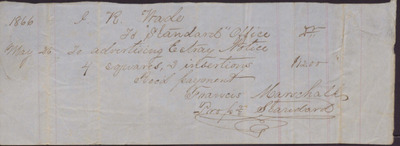 1866 J. R. Wade
To "Standard" Office Dr
May 25 To advertising Estray Notice
4 squares, 3 insertions $12.00
Recd payment
Francis Marschall
Prop. Standard